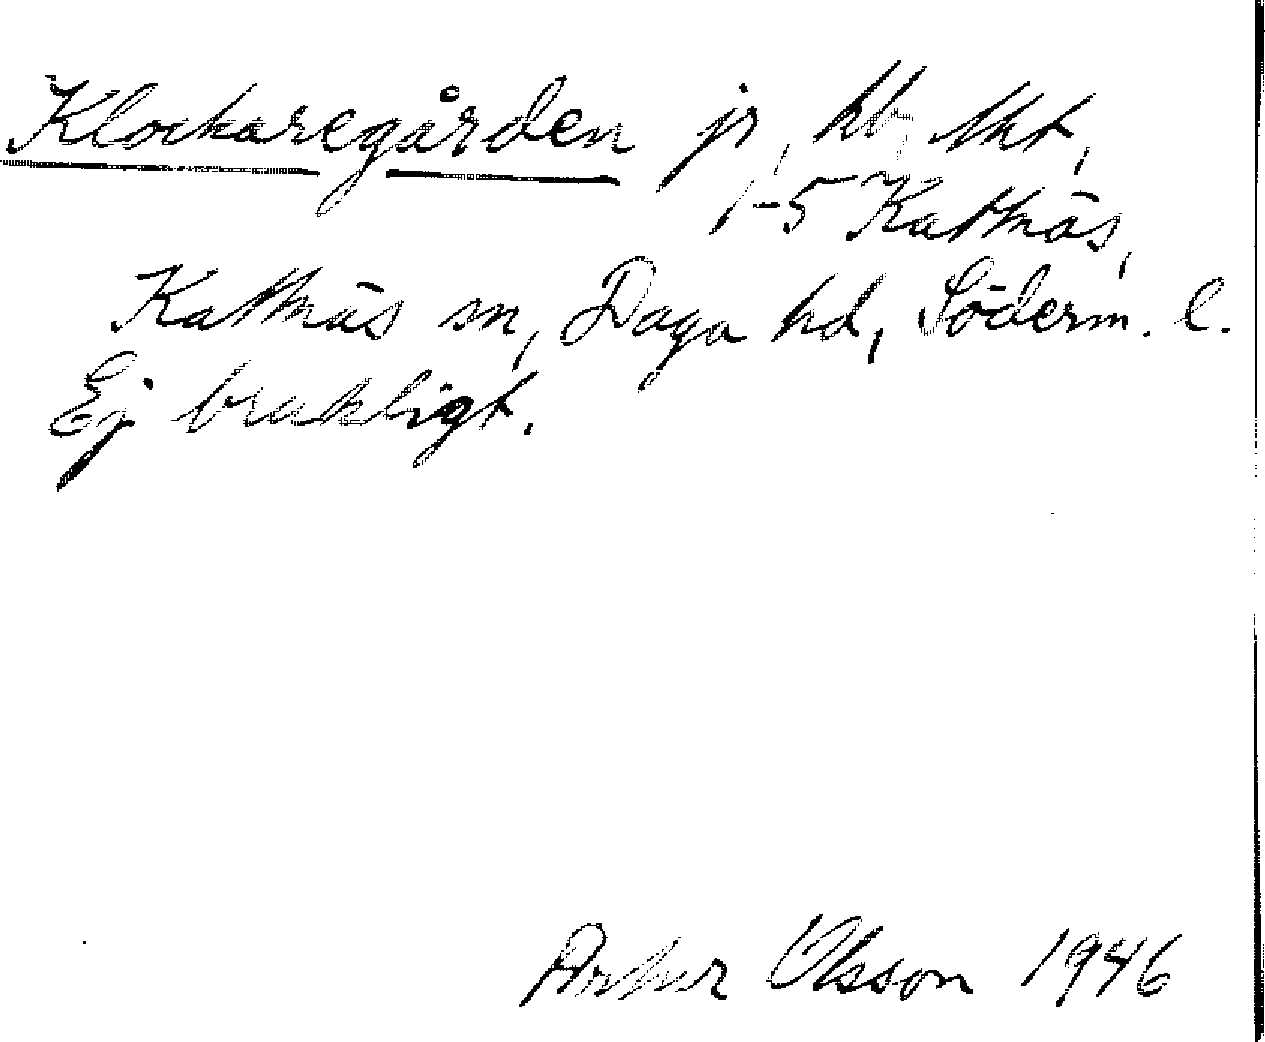 Klockaregården jr, kb, tkt,
1-5 Kattnäs,
Kattnäs sn, Daga hd, Söderm. l.
Ej brukligt.
Arthur Olsson 1946